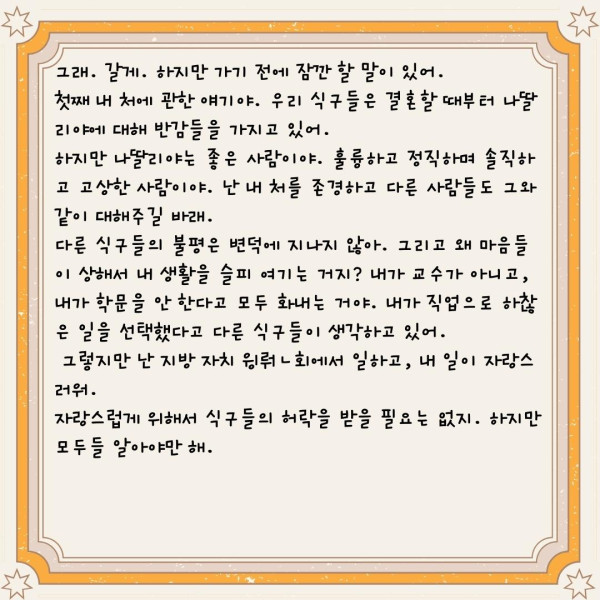 그래. 갈게. 하지만 가기 전에 잠깐 할 말이 있어.
첫째 내 처에 관한 얘기야. 우리 식구들은 결혼할 때부터 나딸
리야에 대해 반감들을 가지고 있어.
하지만 나딸리야는 좋은 사람이야. 훌륭하고 정직하며 솔직하
고 고상한 사람이야. 난 내 처를 존경하고 다른 사람들도 그와
같이 대해주길 바래.
다른 식구들의 불평은 변덕에 지나지 않아. 그리고 왜 마음들
이 상해서 내 생활을 슬피 여기는 거지? 내가 교수가 아니고,
내가 학문을 안 한다고 모두 화내는 거야. 내가 직업으로 하찮
은 일을 선택했다고 다른 식구들이 생각하고 있어.
그렇지만 난 지방 자치 ㄴ회에서 일하고, 내 일이 자랑스
러워.
자랑스럽게 위해서 식구들의 허락을 받을 필요는 없지. 하지만
모두들 알아야만 해.